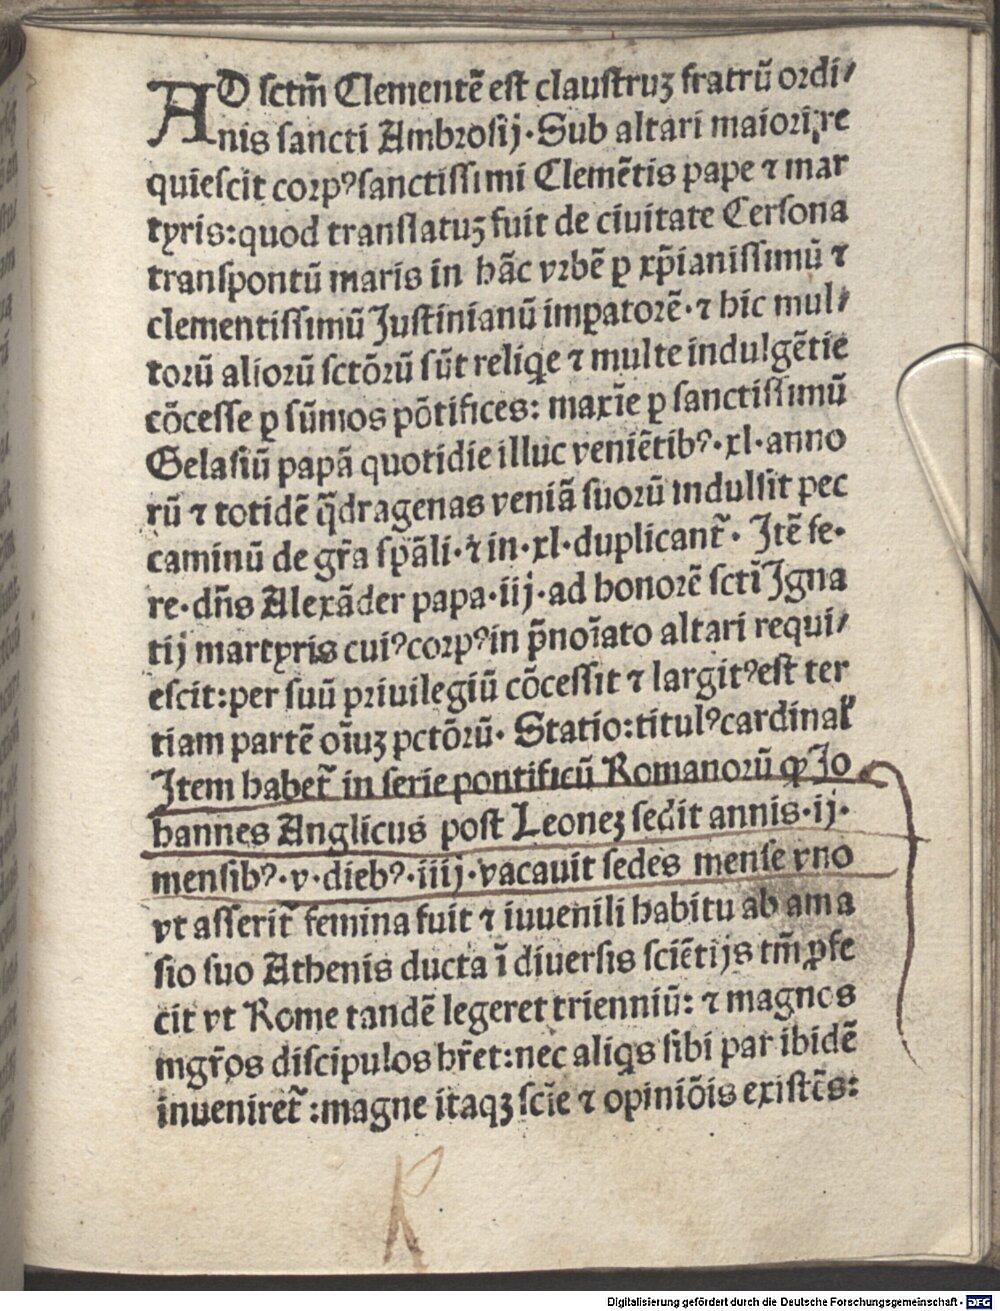 AD sctm̄ Clementē est claustruʒ fratrū ordi/
nis sancti Ambrosij·Sub altari maiori re
quiescit corpꝰ sanctissimi Clemētis pape ⁊ mar
tyris:quod translatuʒ fuit de ciuitate Cersona
transpontū maris in hāc vrbē ꝑ xp̄ianissimū ⁊
clementissimū Justinianū imꝑatorē·⁊ hic mul/
torū aliorū sctōrū sūt reliq̄e ⁊ multe indulgētie
cōcesse ꝑ sūmos pōtifices: maxīe ꝑ sanctissimū
Gelasiū papā quotidie illuc veniētibꝰ·xl·anno
rū ⁊ totidē q̄dragenas veniā suorū indulsit pec
caminū de gr̄a sp̄āli·⁊ in·xl·duplicant̄· Jtē fe·
re·dn̄s Alexāder papa·iij·ad honorē sctī Jgna
tij martyris cuiꝰ corpꝰ in p̄noīato altari requi/
escit:per suū priuilegiū cōcessit ⁊ largitꝰ est ter
tiam partē oīuʒ pctōrū· Statio:titulꝰ cardinal̄
Jtem habet̄ in serie pontificū Romanorū ꝙ Jo
hannes Anglicus post Leoneʒ sedit annis·ij·
mensibꝰ·v·diebꝰ·iiij·vacauit sedes mense vno
vt asserit̄ femina fuit ⁊ iuuenili habitu ab ama
sio suo Athenis ducta ī diuersis sciētijs tm̄ ꝓfe
cit vt Rome tandē legeret trienniū: ⁊ magnos
mgr̄os discipulos hr̄et:nec aliq̄s sibi par ibidē
inueniret̄ :magne itaqʒ scīe ⁊ opiniōis existēs:
Digitalisierung gefördert durch die Deutsche Forschungsgemeinschaft · DFG